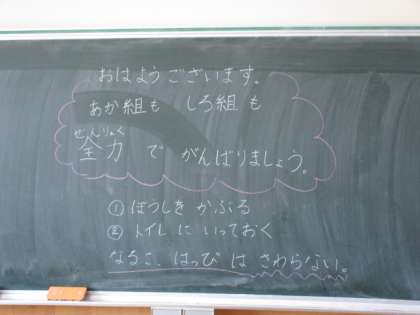 おはようございます。
あか組も しろ組も
ぜんりょく
全力で がんばりましょう。
① ぼうしを かぶる
② トイレに いっておく
なるこ、はっぴは さわらない。